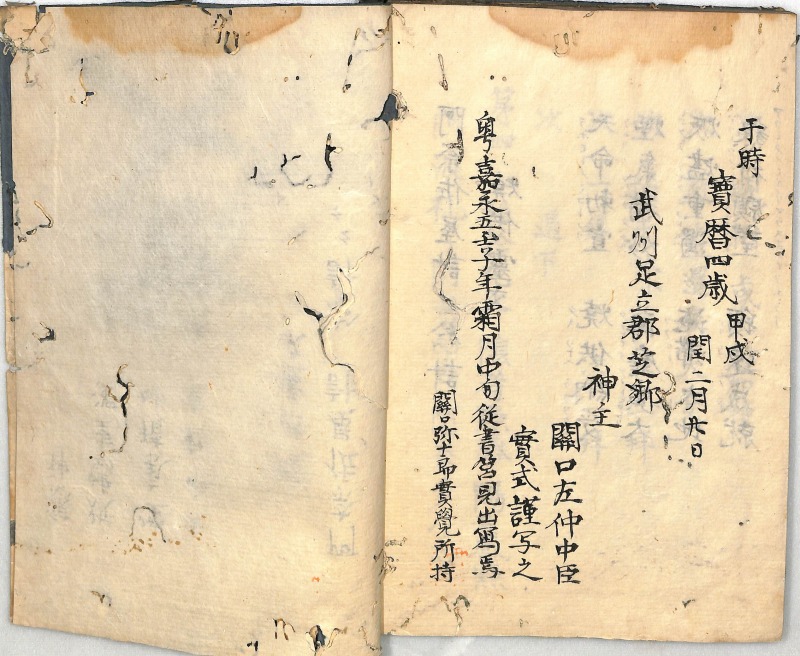 于時
寶暦四歳 甲戌
閏二月廿日
武州足立郡芝郷
神主
關口左仲中臣
實式謹写之
粤嘉永五壬子年霜月中旬従書筥見出写焉
關口弥十郎實覺所持